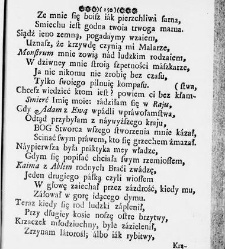 (150)
Ze mnie się boisz iák pierzchliwi sarna,
Smiechu iest godna twoia trwoga marna.
Siądź ieno zemną, pogadaymy wzaiem,
Uznasz, że krzywdę czynią mi Malarze,
Monstrum mnie zowią nád ludzkim rodzaiem,
W dziwney mnie stroią szpetności mászkarze,
Ja nic nikomu nie zrobię bez czasu,
Tylko swoiego pilnuię kompasu.
Chcesz wiedzieć ktom iest? powiem ci bez kłam-
Smierć Imię moie: rádziłam się w Raju,
Gdy z Adam z Ewą wpádli wprawołamstwa,
Odtąd przybyłam z náywyższego kraju,
BOG Stworca wszego stworzenia mnie kázał,
Scinać swym práwem, kto się grzechem ámazał.
Náypierwsza byłá práktyka mey władze,
Gdym się popisać chciała swym rzemiosłem,
Kaima z Ablem rodnych Braći zwádzę,
Jeden drugiego páłką czyli wiosłem
W głowę zaiechał przez zazdrość, kiedy mu,
Zásował w gorę idącego dymu.
Teraz kiedy się rod ludzki zápienił,
Przy długiey kosie noszę ostre brzytwy,
Krzaczek młodziuchny, będę záźielenił,
Zrzynam látorośl; álbo iák rybitwy,
Krz-